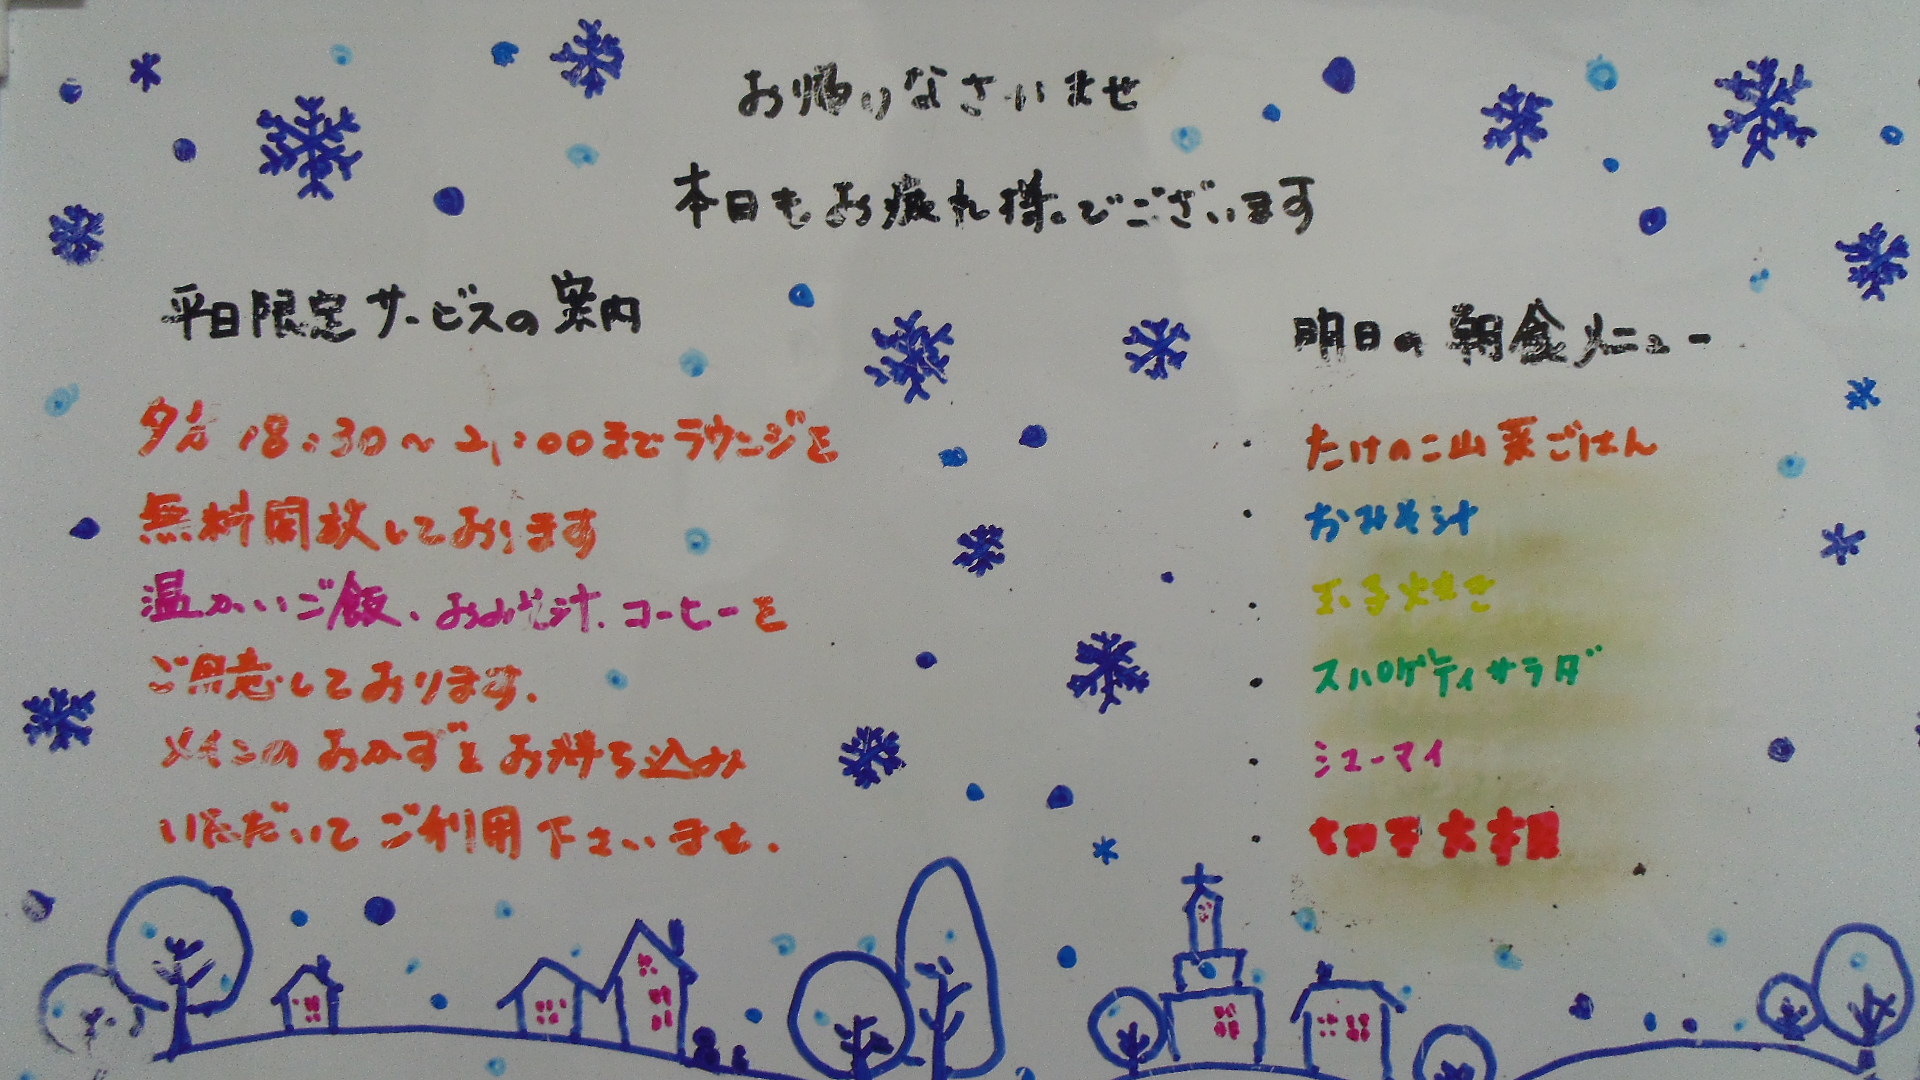 お帰りなさいませ
本日もお疲れ様でございます
平日限定サービスの案内
夕方18:30〜21:00までラウンジを
無料開放しております
温かいご飯、おみそ汁、コーヒーを
ご用意しております。
メインのおかずをお持ち込み
いただいてご利用下さいませ。
明日の朝食メニュー
・たけのこ山菜ごはん
・おみそ汁
・玉子焼き
・スパゲティサラダ
・シューマイ
・切干大根